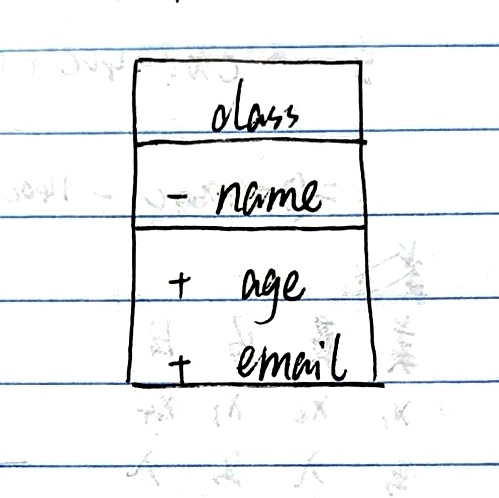 class
- name
+ age
+ email